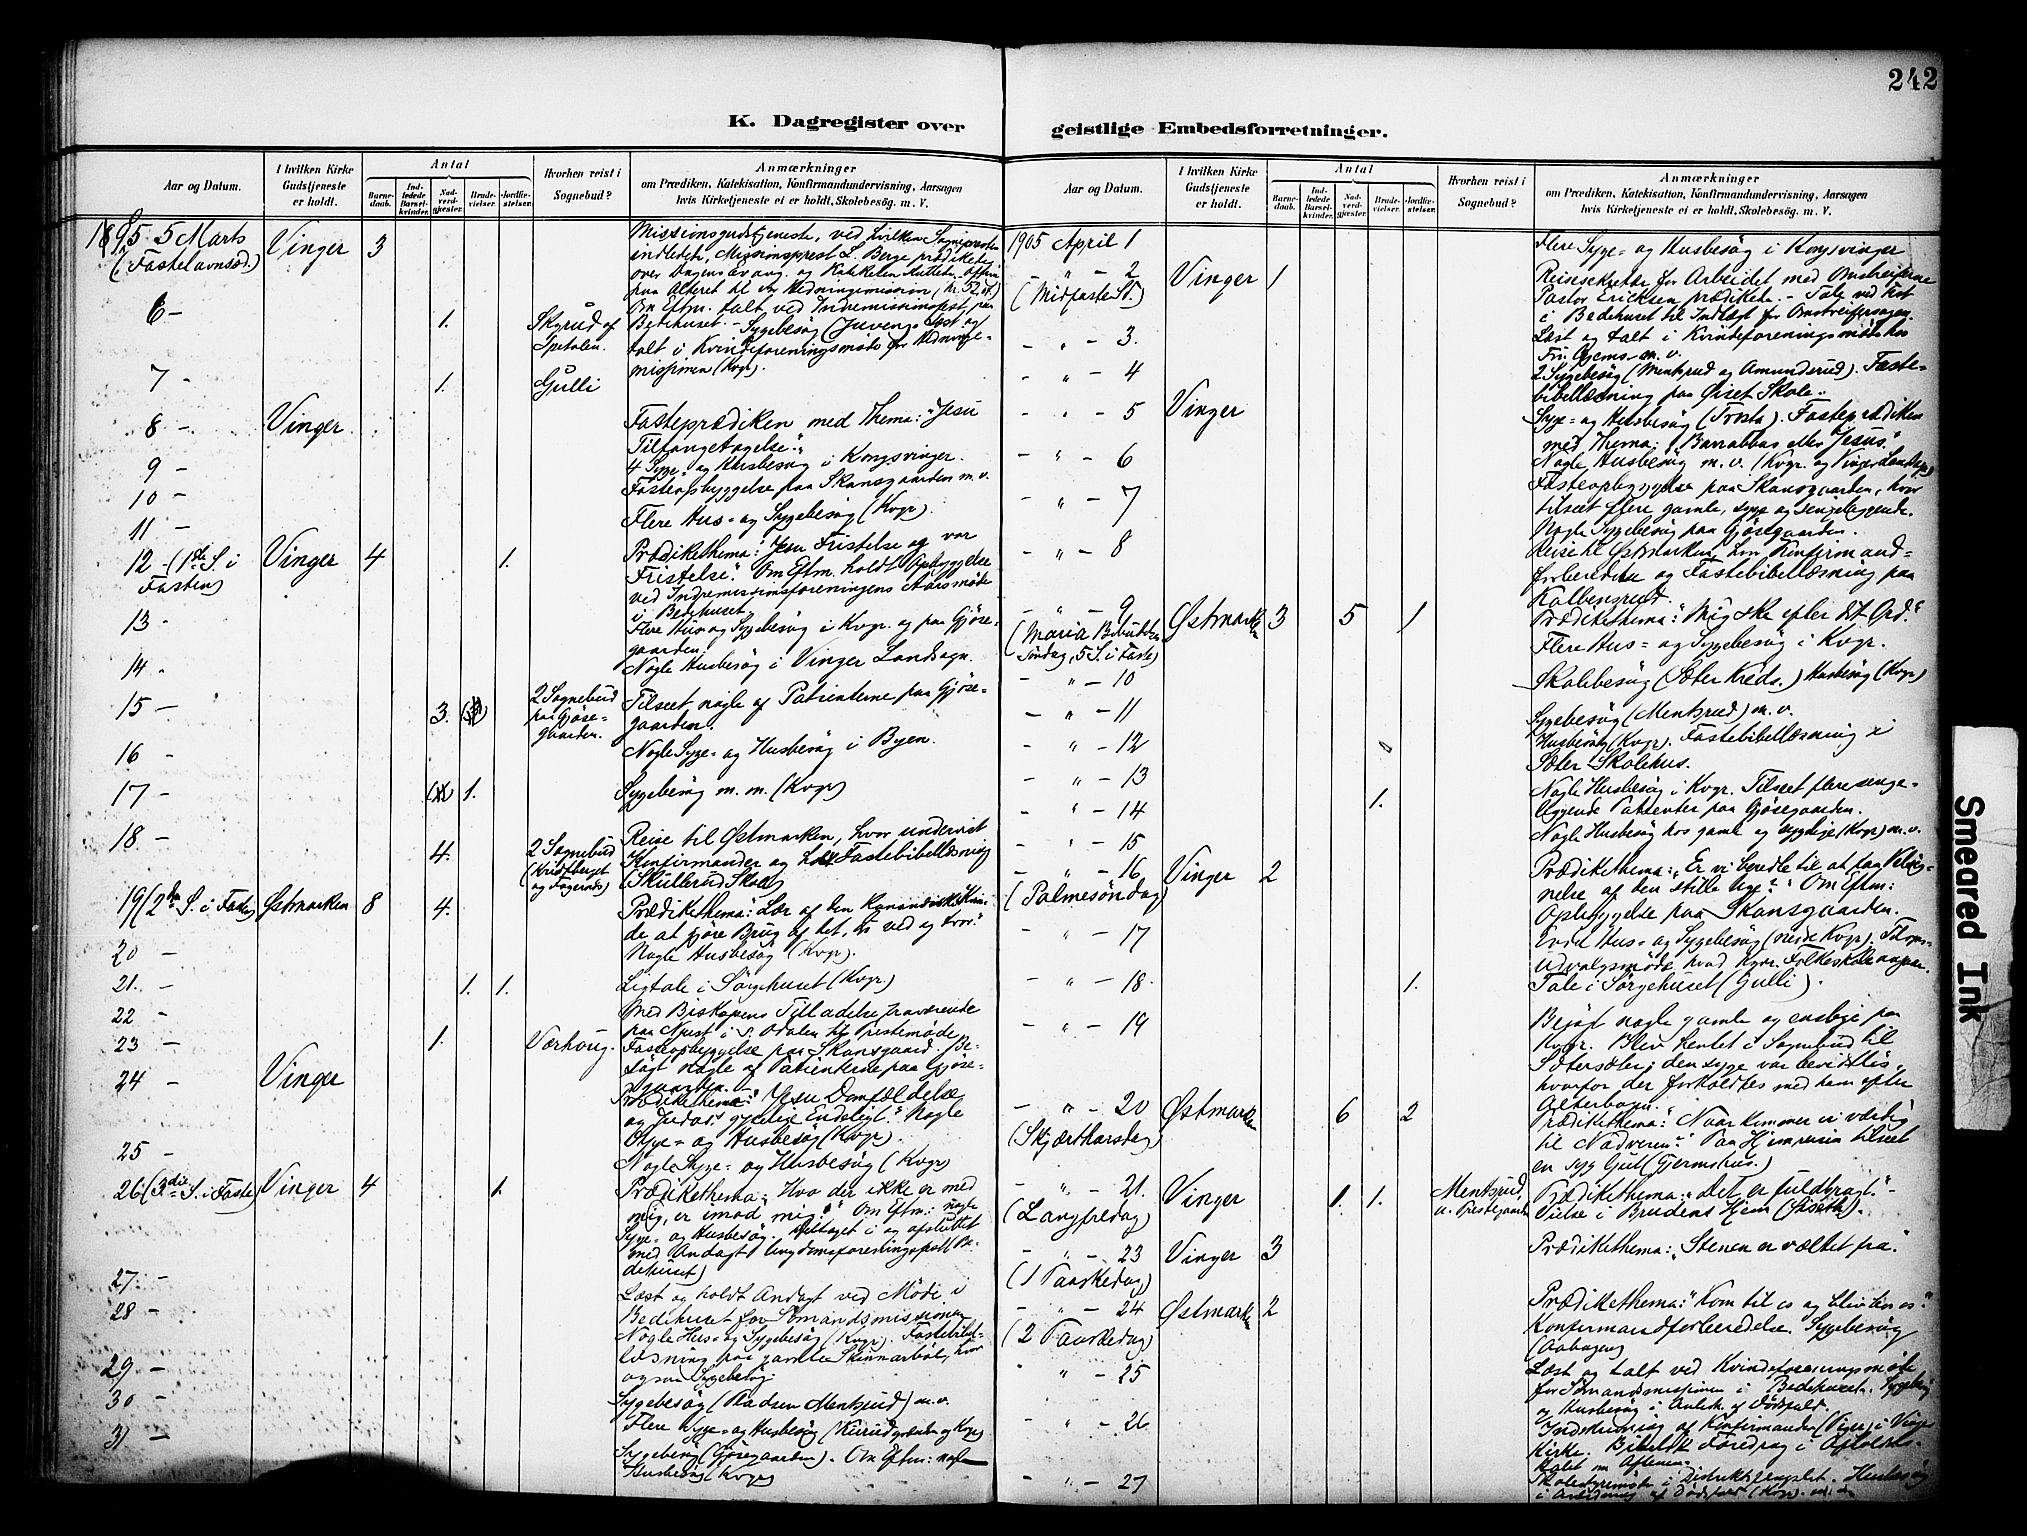 242
K. Dagregister over
geistlige Embedsforretninger.
Aar og Datum.
I hvilken Kirke
Gudstjeneste
er holdt.
Antal
Barne-
daab.
Ind-
ledede
Barsel-
kvinder.
Nad-
verd-
gjester.
Brude-
vielser.
Jordfæ-
stelser.
Hvorhen reist i
Sognebud?
Anmærkninger
om Prædiken, Katekisation, Konfirmandundervisning, Aarsagen
hvis Kirketjeneste ei er holdt, Skolebesøg. m. V.
5 Marts Vinger 3
(Fastelavnsd.)
Missionsgudstjeneste, ved hvilken Sognepresten
indledet, Missionsprest L. Berge prædikete
over Dagens Evang.
6 — 1. Skyrud af
Spetalen.
talt i Kvindeforeningsmøde for Hedninge-
missionen (Kvgr).
7 - 1. Gulli
8 - Vinger Fasteprædiken med Thema: "Jesu
Tilfangetagelse".
9 - 4 Syge- og Husbesøg i Kongsvinger.
10 - Fasteopbyggelse paa Skansgaarden m. v.
11 - Flere Hus- og Sygebesøg (Kvgr).
12 - (1ste S. i Vinger 4 1.
Fasten)
Prædikethema: Jesu Fristelse og vor
Fristelse". Om Eftm. holdt Opbyggelse
ved Indremissionsforeningens Aarsmøde
i Bedehuset.
13 - Flere Hus og Sygebesøg i Kvgr. og paa Gjøse-
gaarden.
14 - Nogle Husbesøg i Vinger Landsogn.
15 — 3. 2 Sognebud
paa Gjøse-
gaarden.
Tilseet nogle af Patienterne paa Gjøse-
gaarden.
16 - Nogle Syge- og Husbesøg i Byen.
17 - 1. Sygebesøg m. m. (Kvgr)
18 - 4. 2 Sognebud
Reise til Østmarken, hvor undervist
Konfirmander og holdt Fastebibellæsning
(Skullerud Skole)
19 (2den S. i Fasten) Østmarken 8 4.
Prædikethema: Lær af den kananæiske Kvin-
de at gjøre Brug af det, du ved og tror."
20 - Nogle Husbesøg (Kvgr).
21. - 1. 1. Ligtale i Sørgehuset (Kvgr)
22 — Med Biskopens Tilladelse fraværende
paa Reise i S. Odalen til Prestemøde
23 — 1. Værhoug.
Fasteopbyggelse paa Skansgaard. Be-
søgt nogle af Patienterne paa Gjøse-
gaarden.
24 - Vinger Prædikethema: "Jesu Domfældelse
og Judas' Endeligt." Nogle
Syge- og Husbesøg (Kvgr).
25 - Nogle Syge- og Husbesøg (Kvgr)
26 (3die S. i Faste) Vinger 4 1.
Prædikethema: Hvo der ikke er med
mig, er imod mig." Om Eftm: nogle
Syge- og Husbesøg. Deltaget i og afsluttet
med Andagt Ungdomsforeningsfest (Be-
dehuset)
27 - Læst og holdt Andagt ved Møde i
Bedehuset for Sømandsmissionen
28 - Nogle Hus- og Sygebesøg (Kvgr). Fastebibel-
læsning paa gamle Skinnarbøl, hvor
ogsaa Sygebesøg.
29 - Sygebesøg (Pladsen Mentzrud) m. v.
30 - Flere Syge- og Husbesøg
31 - Sygebesøg (Gjøsegaarden). Om Eftm: nogle
Husbesøg (Kvgr)
Aar og Datum.
I hvilken Kirke
Gudstjeneste
er holdt.
Antal
Barne-
daab.
Ind-
ledede
Barsel-
kvinder.
Nad-
verd-
gjester.
Brude-
vielser.
Jordfæ-
stelser.
Hvorhen reist i
Sognebud?
Anmærkninger
om Prædiken, Katekisation, Konfirmandundervisning, Aarsagen
hvis Kirketjeneste ei er holdt, Skolebesøg. m. V.
1905 April 1 Flere Syge- og Husbesøg i Kongsvinger
- " - 2 Vinger 1
(Midfaste S.)
Reisesekretær for Arbeidet med Omstreiferne
Pastor Ericksen prædikete. - Tale ved Fest
i Bedehuset til Indtægt for Omstreifersagen.
- " - 3. Læst og talt i Kvindeforeningsmøde hos
Fru Gjems m. v.
- " - 4 2 Sygebesøg (Mentzrud og Amunderud). Faste-
bibellæsning paa Øiset Skole.
- " - 5 Vinger Syge- og Husbesøg (Frosta). Fasteprædiken
med Thema: "Barrabbas eller Jesus."
- " - 6 Nogle Husbesøg m. v. (Kvgr. og Vinger Landsogn)
- " - 7 Fasteopbyggelse paa Skansgaarden, hvor
tilseet flere gamle, syge og sengeliggende.
Nogle Sygebesøg paa Gjøsegaarden.
- " - 8 Reise til Østmarken, hvor Konfirmand-
forberedelse og Fastebibellæsning paa
Kalbensrud.
- " - 9 Østmarken 3 5 1
(Maria Bebud.
Søndag, 5 S. i Faste)
Prædikethema: "Mig ske efter dit Ord."
Flere Hus- og Sygebesøg i Kvgr.
- " - 10 Skolebesøg (Sæter Kreds.) Husbesøg (Kvgr)
- " - 11 Sygebesøg (Mentzrud) m. v.
- " - 12 Husbesøg (Kvgr). Fastebibellæsning i
Sæter Skolehus.
- " - 13 Nogle Husbesøg i Kvgr. Tilseet flere senge-
liggende Patienter paa Gjøsegaarden.
- " - 14 1.
- " - 15 Nogle Husbesøg hos gamle og sygelige (Kvgr) m. v.
- " - 16 Vinger 2
(Palmesøndag)
Prædikethema: "Er vi beredte til at faa Velsig-
nelse af den stille Uge?" Om Eftm:
Opbyggelse paa Skansgaarden.
- " - 17 Hus- og Sygebesøg (nedre Kvgr). Tilsyns-
udvalgsmøde hvad Kgvr. Folkeskole angaar.
- " - 18 1. Tale i Sørgehuset (Gulli).
- " - 19 Besøgt nogle gamle og enslige paa
Kvgr. Blev hentet i Sognebud til
Sætersæter; den syge var bevidstløs,
hvorfor der forholdtes med ham efter
Alterbogen.
- " - 20 Østmarken 6 2
(Skjærthorsdag)
Prædikethema: "Naar kommer vi værdig
til Nadveren?" Paa Hjemreisen tilseet
en syg Gut (Gjermshus.)
- " - 21. Vinger 1. 1. Mentzrud,
(Langfredag)
Prædikethema: "Det er fuldbragt." -
Vielse i Brudens Hjem
- " - 23 Vinger 3
(1 Paaskedag)
Prædikethema: "Stenen er væltet fra."
- " - 24 Østmarken 2
(2 Paaskedag)
Prædikethema: "Kom til os og bliv hos os."
Konfirmandforberedelse. Sygebesøg
(Aabogen)
" - 25 Læst og talt ved Kvindeforeningsmøde
for Sømandsmissionen i Bedehuset. Sygebesøg
og Husbesøg i Anledn. af Dødsfald.
- " - 26 Indskrivning af Konfirmander (Vinger) i Vinger
Kirke. Bibelsk Foredrag i Afholds-
lokalet om Aftenen.
- " - 27 Skolestyremøde i Distriktsfængslet. Husbesøg
i Anledning af Dødsfald (Kvgr)
Smeared Ink